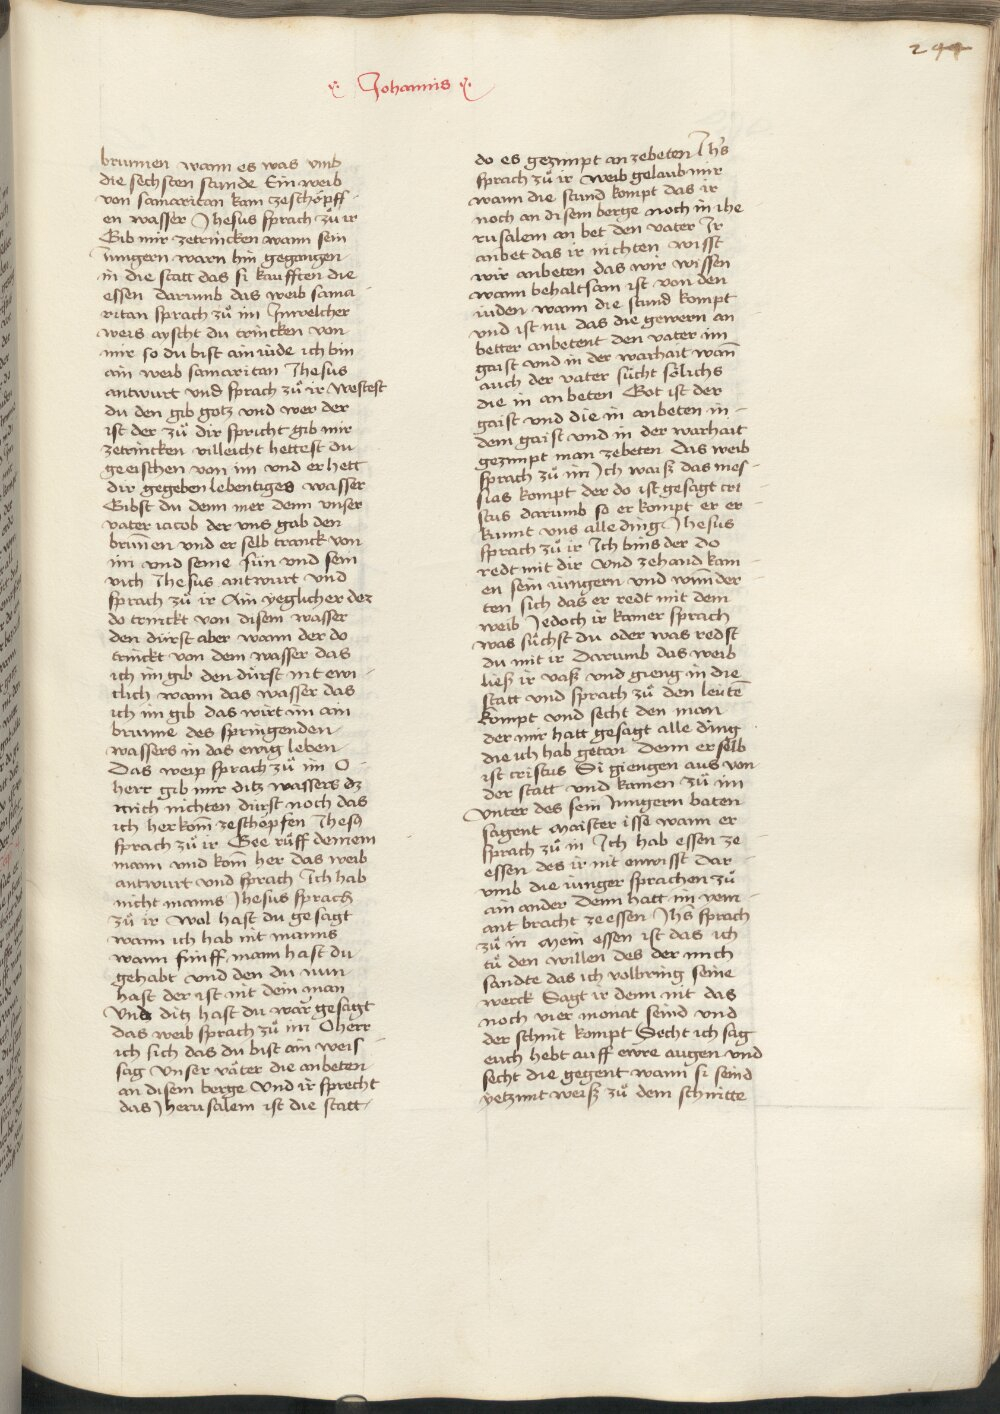 244
Johannis
brunnen wann es was vmb
die sechsten stunde Ein weib
von samaritan kam zeschöpff
en wasser Jhesus sprach zů ir
Gib mir zetrincken wann sein
Jungern warn hin gegangen
in die statt das si kaufften die
essen darumb das weib sama
ritan sprach zů im Inwelcher
weis ayscht du trincken von
mir so du bist ain iüde ich bin
ain weib samaritan Jhesus
antwurt vnd sprach zů ir Westest
du den gib gotz vnd wer der
ist der zů dir spricht gib mir
zetrincken villeicht hettest du
geeischen von im vnd er hett
dir gegeben lebentiges wasser
Gibst du denn mer denn vnser
vater iacob der vns gab den
brun̄en vnd er selb tranck von
im vnd seine sün vnd sein
vich Jhesus antwurt vnd
sprach zů ir Ain yeglicher dez
do trinckt von disem wasser
den dürst aber wann der do
trinckt von dem wasser das
ich im gib den dürst nit ewi
clich wann das wasser das
ich im gib das wirt im ain
brunne des springenden
wassers in das ewig leben
Das weip sprach zů im O
herr gib mir ditz wassers dz
mich nichten dürst noch das
ich her kom̄ zeschöpfen Jhesꝰ
sprach zů ir Gee rüff deinem
mann vnd kom her das weib
antwurt vnd sprach Ich hab
nicht manns Jhesus sprach
zů ir wol hast du gesagt
wann ich hab nit manns
wann fünff mann hast du
gehabt vnd den du nun
hast der ist nit dein man
Vnd ditz hast du war gesagt
das weib sprach zů im O herr
ich sich das du bist ain weis
sag Vnser väter die anbeten
an disem berge Vnd ir sprecht
das Jherusalem ist die statt
do es gezimpt an zebeten Jhs
sprach zů ir weib gelaub mir
wann die stund kompt das ir
noch an disem berge noch in ihe
rusalem an bet den vater Ir
anbet das ir nichten wisst
wir anbeten das wir wissen
wann behaltsam ist von den
iuden wann die stund kompt
vnd ist nu das die gewern an
better anbetent den vater im
gaist vnd in der warhait wan̄
auch der vater sücht sölichs
die in an beten Got ist der
gaist vnd die in anbeten in
dem gaist vnd in der warhait
gezimpt man zebeten das weib
sprach zů im Ich waiß das mes
sias kompt der do ist gesagt cri
stus darumb so er kompt er er
kunt vns alle ding Jhesus
sprach zů ir Ich bins der do
redt mit dir Vnd zehand kam
en sein iungern vnd wun̄der
ten sich das er redt mit dem
weib Jedoch ir kainer sprach
was süchst du oder was redst
du mit ir Darumb das weib
ließ ir vaß vnd gieng in die
statt vnd sprach zů den leute̅
kompt vnd secht den man
der mir hatt gesagt alle ding
die ich hab getan Denn er selb
ist cristus Si giengen aus von
der statt vnd kamen zů im
Vnter des sein Jungern baten
sagent maister isse wann er
sprach zů in Ich hab essen ze
essen des ir nit enwisst Dar
vmb die iunger sprachen zů
ain ander Denn hatt im yem
ant bracht ze essen Jhs̄ sprach
zů in Mein essen ist das ich
tů den willen des der mich
sandte das ich volbring seine
werck Sagt ir denn nit das
noch vier monat seind vnd
der schnit kompt Secht ich sag
euch hebt auff ewre augen vnd
secht die gegent wann si seind
yetzunt weiß zů dem schnitte